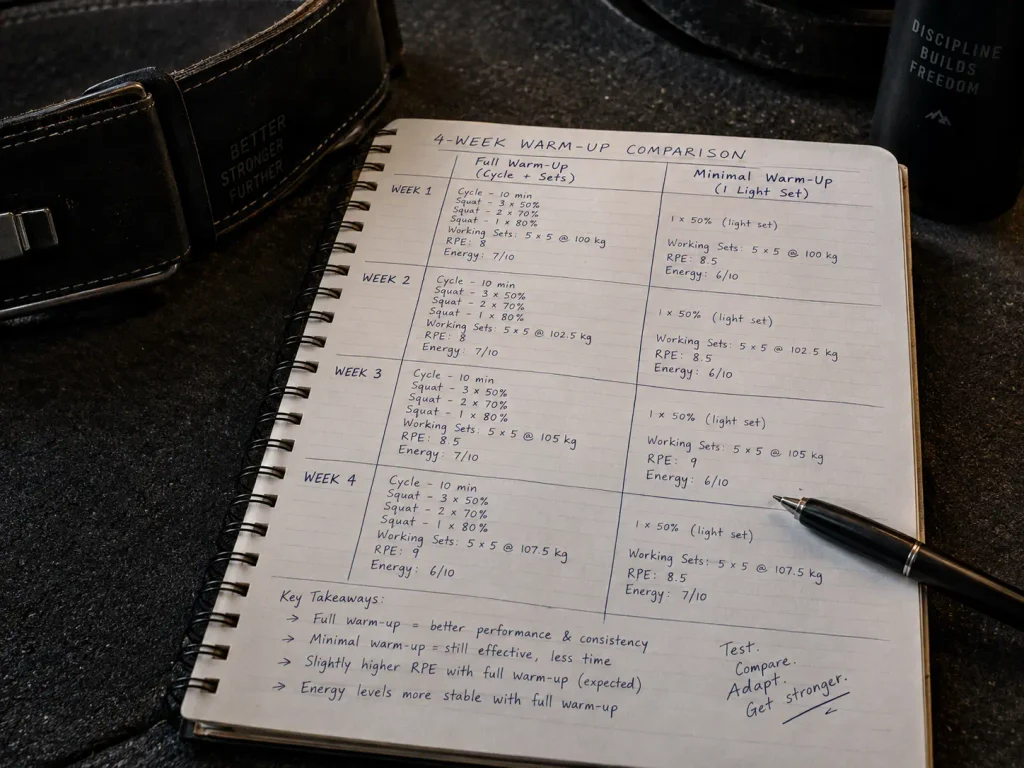 BETTER
STRONGER
FURTHER
DISCIPLINE
BUILDS
FREEDOM
4-WEEK WARM-UP COMPARISON
Full Warm-Up
(Cycle + Sets)
Minimal Warm-Up
(1 Light Set)
WEEK 1
Cycle - 10 min
Squat - 3 x 50%
Squat - 2 x 70%
Squat - 1 x 80%
Working Sets: 5 x 5 @ 100 kg
RPE: 8
Energy: 7/10
1 x 50% (light set)
Working Sets: 5 x 5 @ 100 kg
RPE: 8.5
Energy: 6/10
WEEK 2
Cycle - 10 min
Squat - 3 x 50%
Squat - 2 x 70%
Squat - 1 x 80%
Working Sets: 5 x 5 @ 102.5 kg
RPE: 8
Energy: 7/10
1 x 50% (light set)
Working Sets: 5 x 5 @ 102.5 kg
RPE: 8.5
Energy: 6/10
WEEK 3
Cycle - 10 min
Squat - 3 x 50%
Squat - 2 x 70%
Squat - 1 x 80%
Working Sets: 5 x 5 @ 105 kg
RPE: 8.5
Energy: 7/10
1 x 50% (light set)
Working Sets: 5 x 5 @ 105 kg
RPE: 9
Energy: 6/10
WEEK 4
Cycle - 10 min
Squat - 3 x 50%
Squat - 2 x 70%
Squat - 1 x 80%
Working Sets: 5 x 5 @ 107.5 kg
RPE: 9
Energy: 6/10
1 x 50% (light set)
Working Sets: 5 x 5 @ 107.5 kg
RPE: 8.5
Energy: 7/10
Key Takeaways:
→ Full warm-up = better performance & consistency
→ Minimal warm-up = still effective, less time
→ Slightly higher RPE with full warm-up (expected)
→ Energy levels more stable with full warm-up
Test.
Compare.
Adapt.
Get stronger.